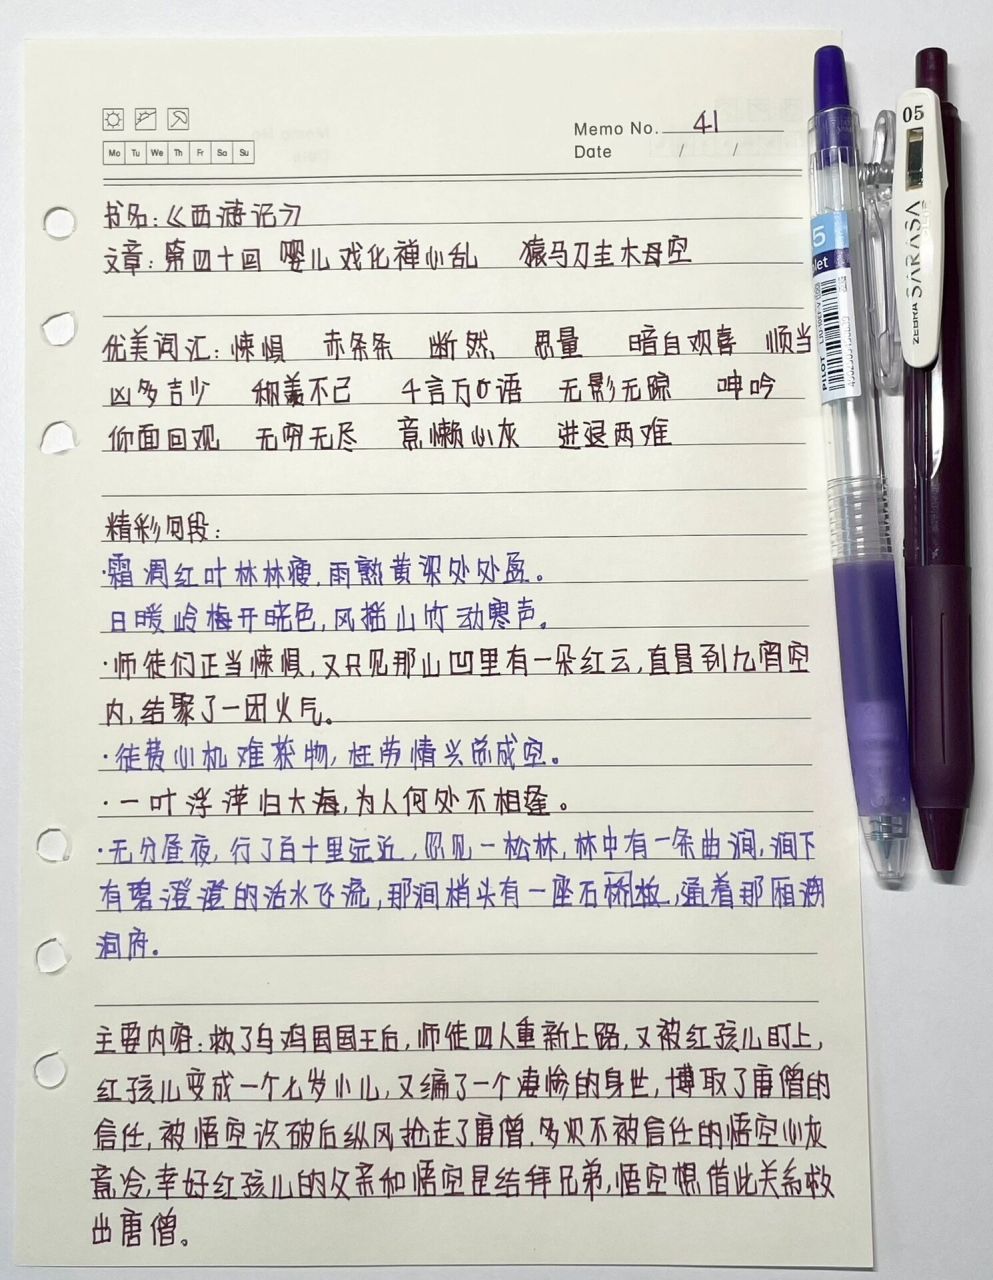 Memo No. 41
Mo Tu We Th Fr Sa Su
Date / /
书名：《西游记》
文章：第四十回 婴儿戏化禅心乱 猿马刀圭木母空
优美词汇：悚惧 赤条条 断然 思量 暗自欢喜 顺当
凶多吉少 积善不已 千言万语 无影无踪 呻吟
仰面回观 无穷无尽 意懒心灰 进退两难
精彩句段：
·霜凋红叶林林瘦，雨熟黄粱处处盈。
日暖岭梅开晓色，风摇山竹动寒声。
·师徒们正当悚惧，又只见那山凹里有一朵红云，直冒到九霄空
内，结聚了一团火气。
·徒费心机难获物，枉劳情兴总成空。
·一叶浮萍归大海，为人何处不相逢。
·无分昼夜，行了百十里远近，忽见一松林，林中有一条曲涧，涧下
有碧澄澄的活水飞流，那涧梢头有一座石桥板，通着那厢洞
洞府。
主要内容：救了乌鸡国国王后，师徒四人重新上路，又被红孩儿盯上，
红孩儿变成一个七岁小儿，又编了一个凄惨的身世，博取了唐僧的
信任，被悟空识破后纵风抢走了唐僧，多次不被信任的悟空心灰
意冷，幸好红孩儿的父亲和悟空是结拜兄弟，悟空想借此关系救
出唐僧。
05
ZEBRA SARASA
5
PILOT